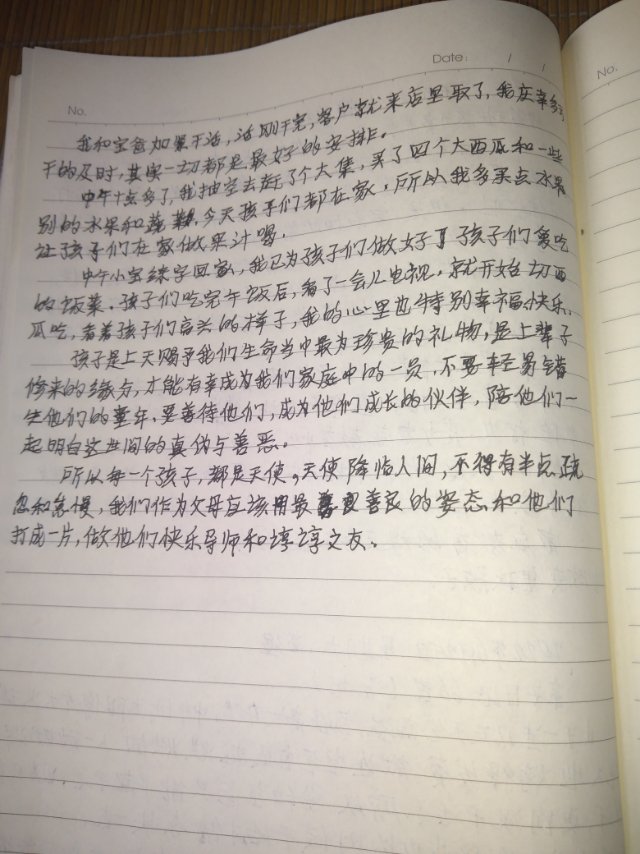 Date: / /
No.
No.
我和宝爸如果干活,活刚干完,客户就来店里取了,我庆幸
干的及时,其实一切都是最好的安排。
中午十点多了,我抽空去赶了个大集,买了四个大西瓜和一些
别的水果和蔬菜,今天孩子们都在家。所以我多买点水果
让孩子们在家做果汁喝。
中午小宝练字回家,我已为孩子们做好了孩子们爱吃
的饭菜。孩子们吃完午饭后,看了一会儿电视,就开始切西
瓜吃,看着孩子们高兴的样子,我的心里也特别幸福快乐。
孩子是上天赐予我们生命当中最为珍贵的礼物,是上辈子
修来的缘分,才能有幸成为我们家庭中的一员,不要轻易错
失他们的童年。要善待他们,成为他们成长的伙伴,陪他们一
起明白这世间的真伪与善恶。
所以每一个孩子,都是天使。天使降临人间,不得有半点疏
忽和怠慢,我们作为父母应该用最善良的姿态和他们
打成一片,做他们快乐导师和谆谆之友。